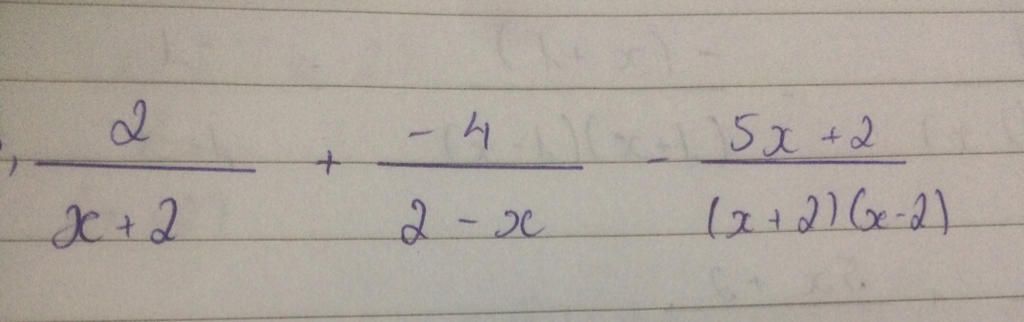 , 2/(x+2) + -4/(2-x) - (5x+2)/((x+2)(x-2))